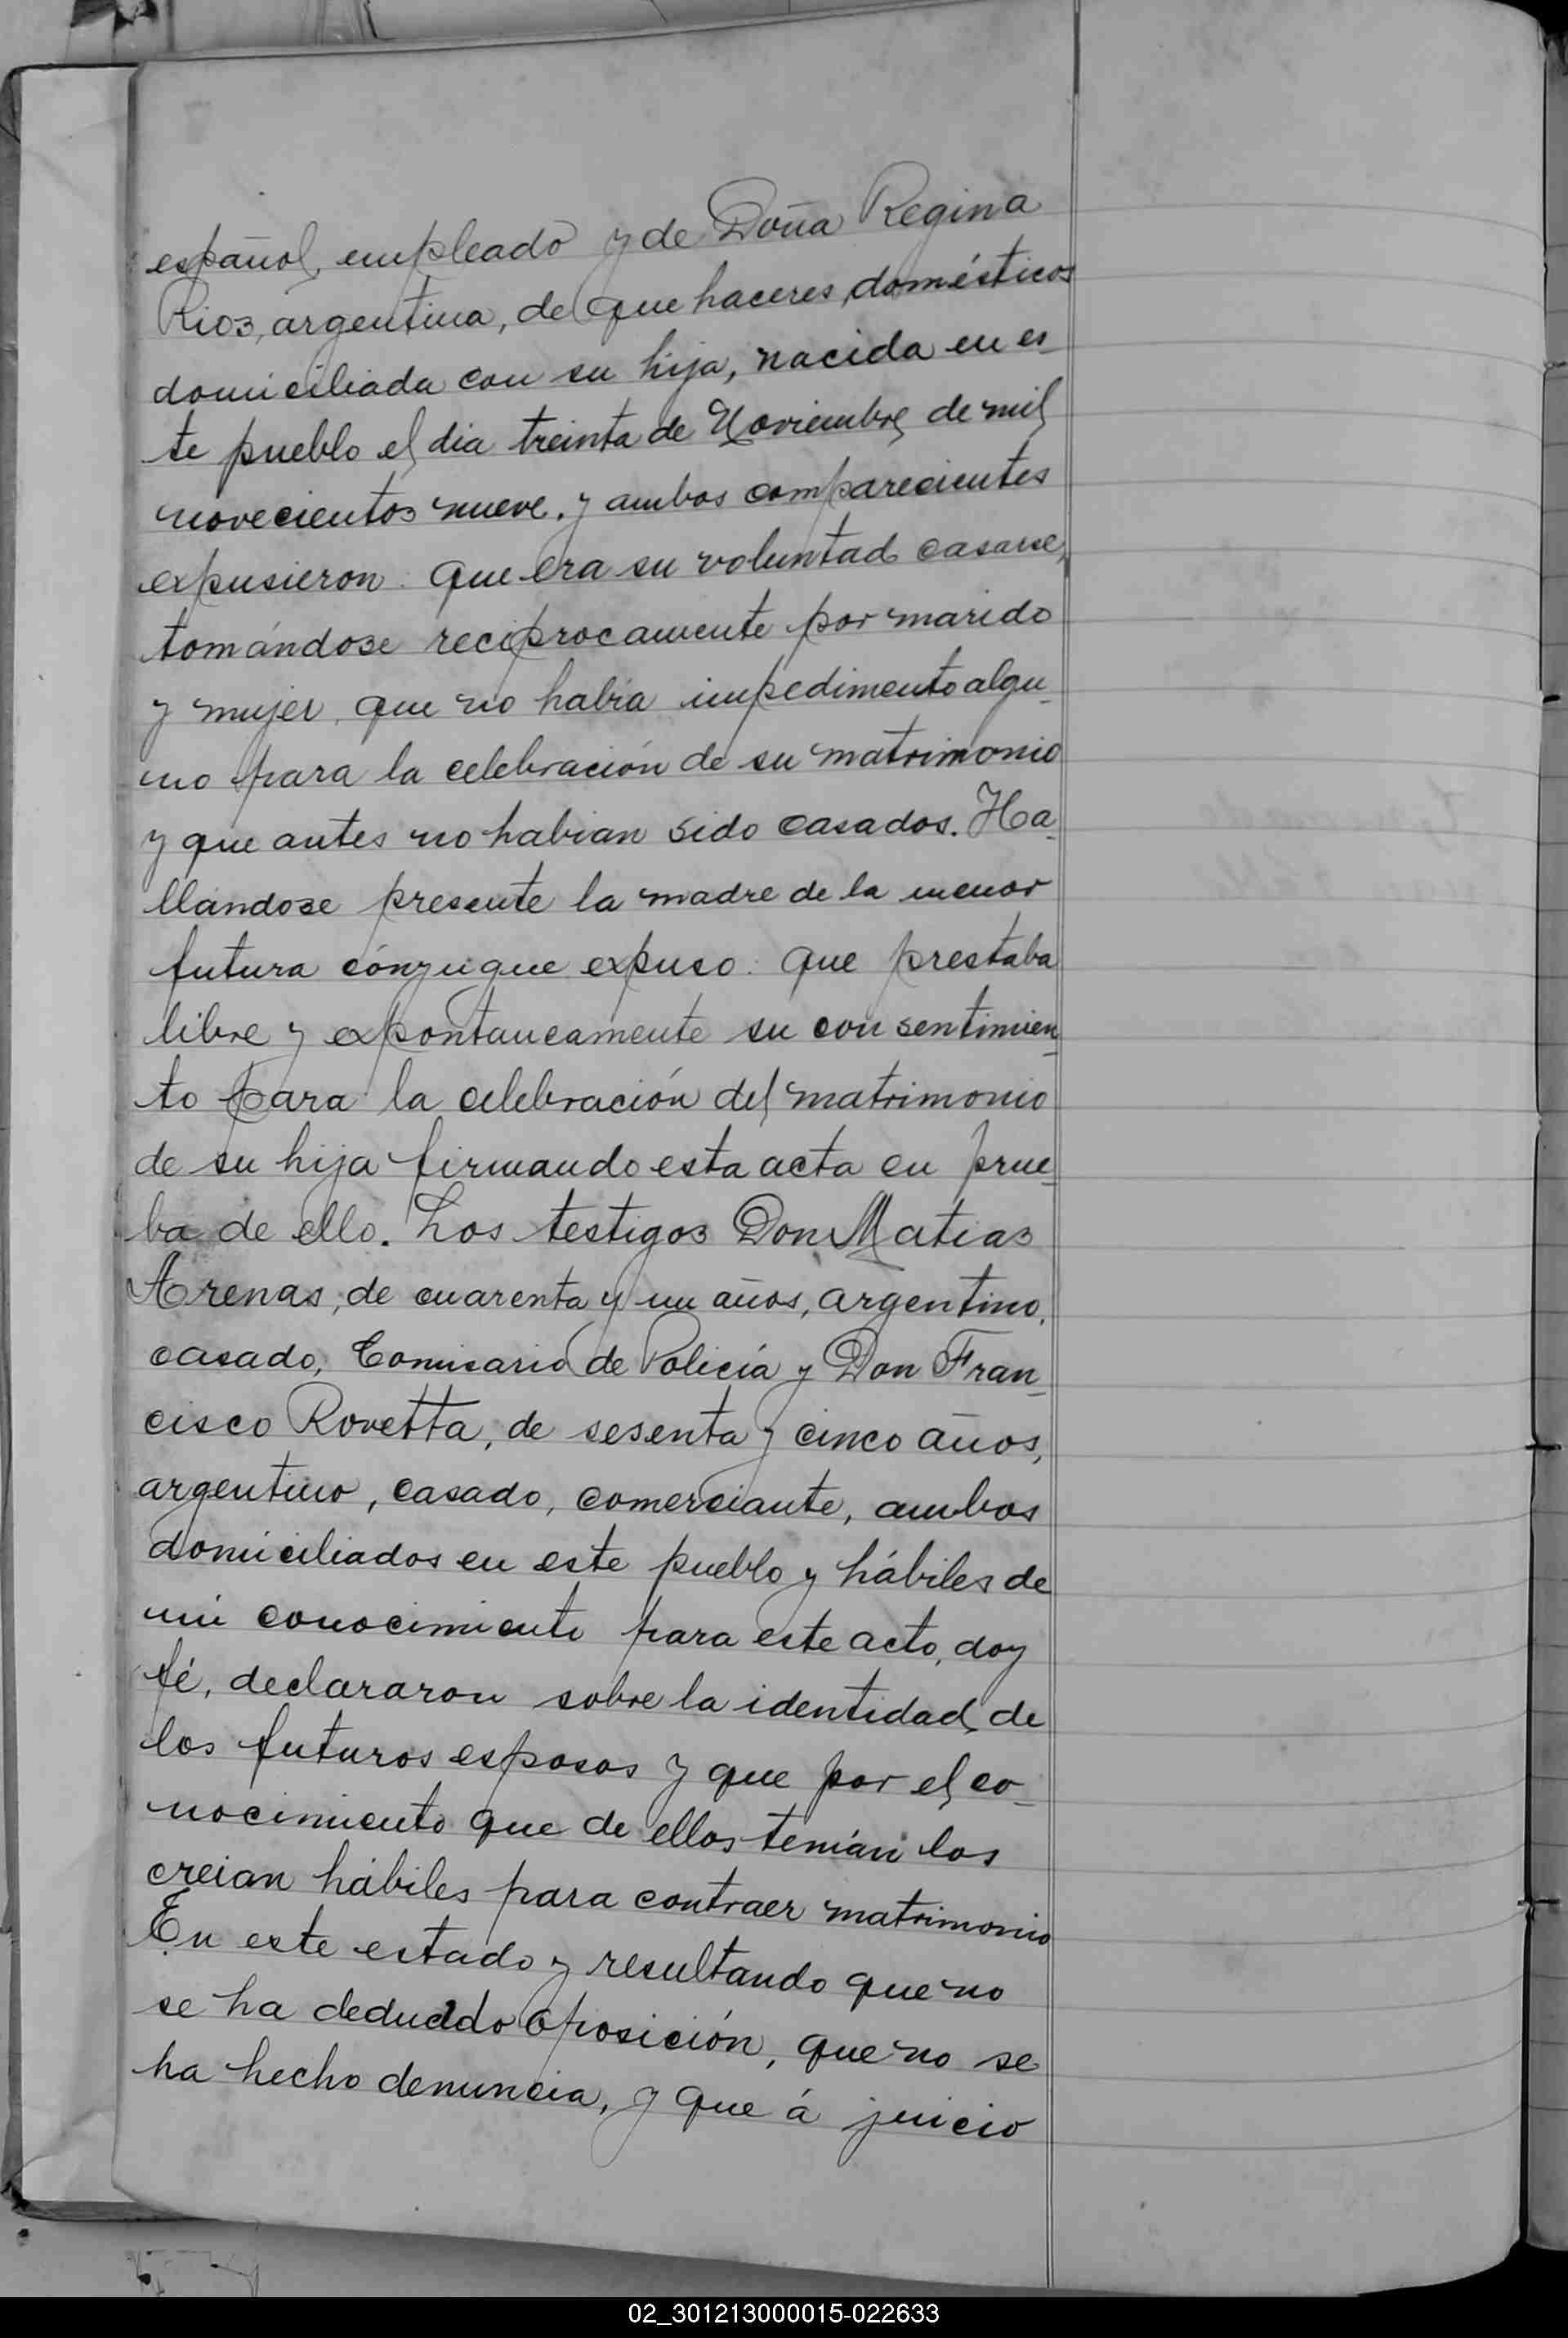 español, empleado y de Doña Regina
Rios, argentina, de que haceres domésticos
domiciliada con su hija, nacida en es-
te pueblo el dia treinta de Noviembre de mil
novecientos nueve. y ambos comparecientes
expusieron: que era su voluntad casarse,
tomándose reciprocamente por marido
y mujer, que no habia impedimento algu-
no para la celebración de su matrimonio
y que antes no habian sido casados. Ha-
llándose presente la madre de la menor
futura cónyugue expuso: que prestaba
libre y expontaneamente su consentimien-
to para la celebración del matrimonio
de su hija firmando esta acta en prue-
ba de ello. Los testigos Don Matias
Arenas, de cuarenta y un años, argentino,
casado, Comisario de Policía y Don Fran-
cisco Rovetta, de sesenta y cinco años,
argentino, casado, comerciante, ambos
domiciliados en este pueblo y hábiles de
mi conocimiento para este acto, doy
fé, declararon sobre la identidad de
los futuros esposos y que por el co-
nocimiento que de ellos tenían los
creian hábiles para contraer matrimonio
En este estado y resultando que no
se ha deducido oposición, que no se
ha hecho denuncia, y que á juicio
02_301213000015-022633